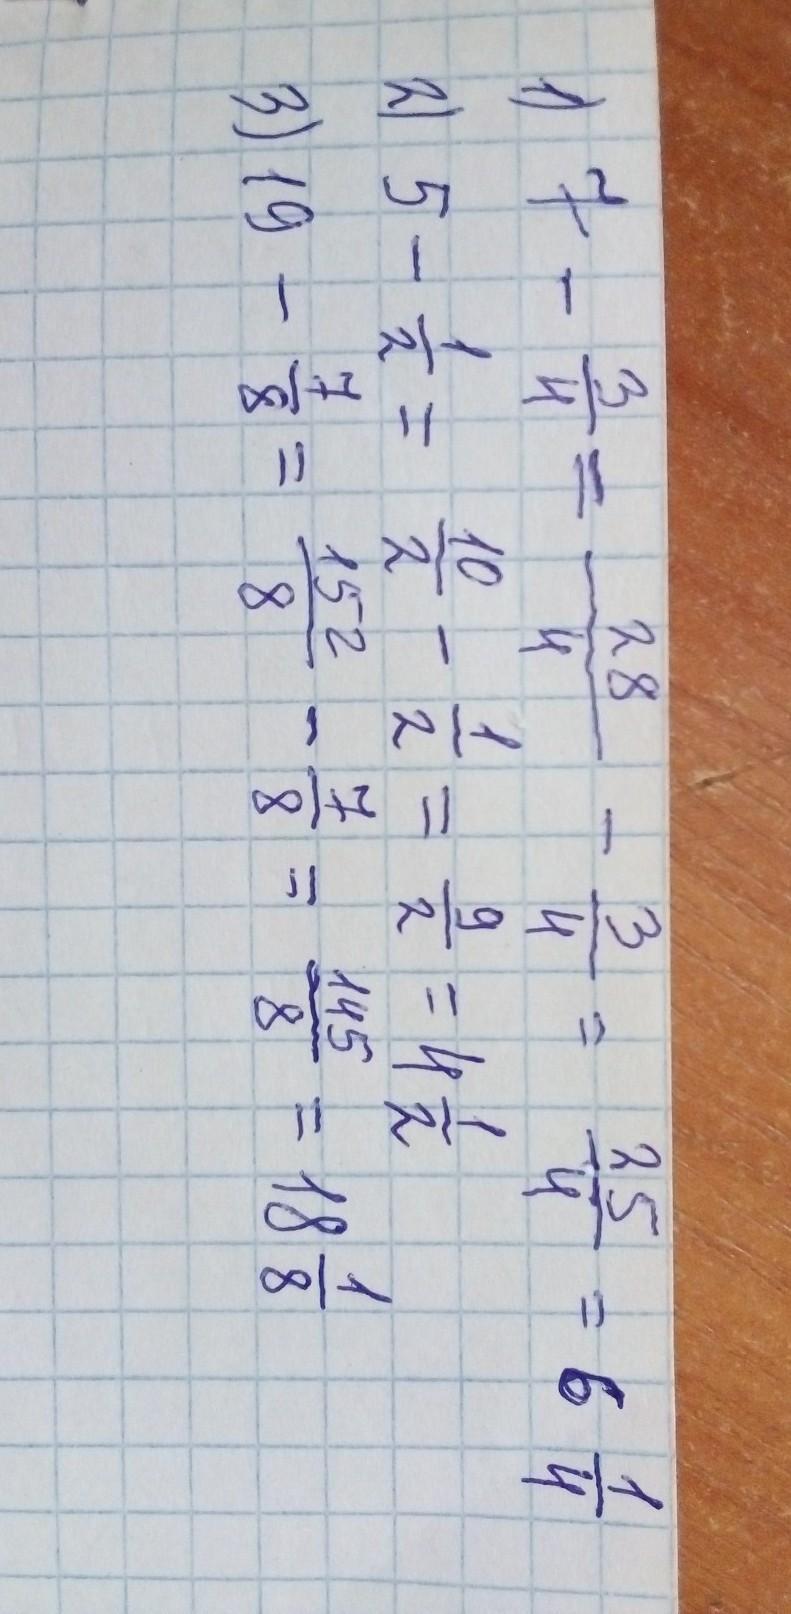 1) 7 - 3/4 = 28/4 - 3/4 = 25/4 = 6 1/4
2) 5 - 1/2 = 10/2 - 1/2 = 9/2 = 4 1/2
3) 19 - 7/8 = 152/8 - 7/8 = 145/8 = 18 1/8